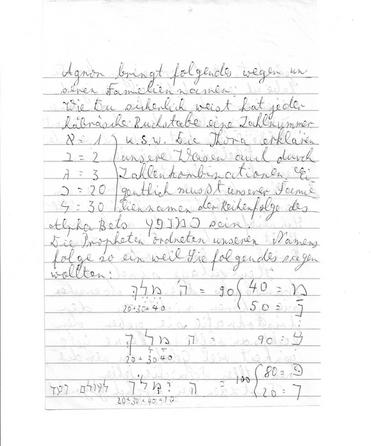 Agnon bringt folgendes wegen un-
seren Familiennamen:
Wie Du sicherlich weist hat jeder
häbräische Buchstabe eine Zahlnummer
א = 1 u.s.w. Die Thora erklären
ב = 2 unsere Weisen auch durch
ג = 3 Zahlenkombinationen. Ei-
כ = 20 gentlich musst unserer Famie
ל = 30 liennamen der Reihenfolge des
Alpha Bets כמנפץ sein.
Die Propheten ordneten unseren Namens
folge so ein weil Sie folgendes sagen
wollten:
מ = 40
נ = 50 } 90 = ה' מלך
20+30+40
צ = 90 = ה מלך
20+30+40
פ = 80
ך = 20 } 100 = ה ימלך לעולם ועד
20+30+40+10